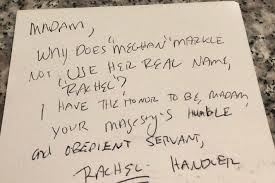 MADAM,
WHY DOES "MEGHAN" MARKLE
NOT USE HER REAL NAME,
"RACHEL"?
I HAVE THE HONOR TO BE, MADAM
YOUR MAGESTY'S HUMBLE
and OBEDIENT SERVANT,
RACHEL HANDLER